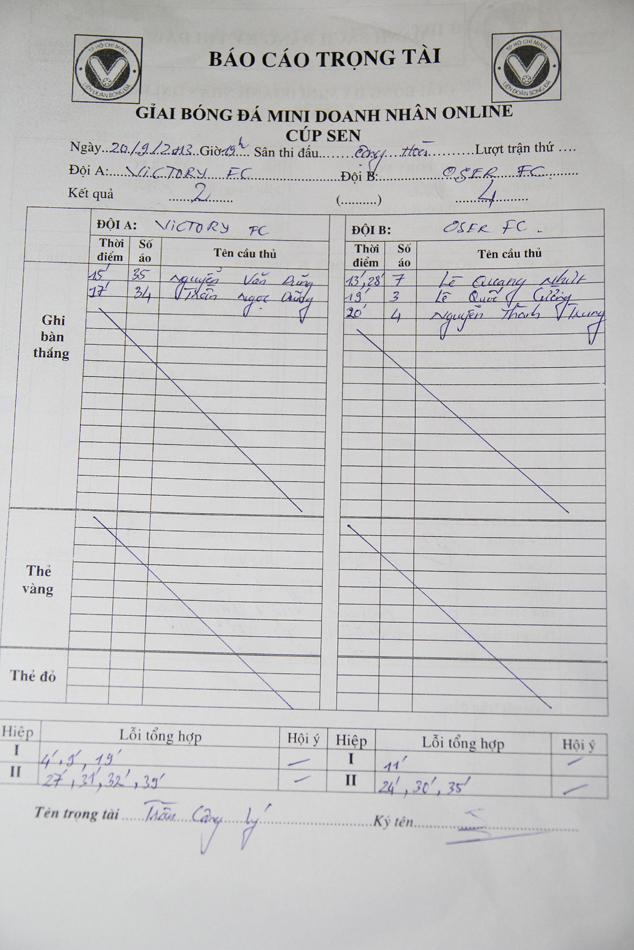 TP HỒ CHÍ MINH
LIÊN ĐOÀN BÓNG ĐÁ
BÁO CÁO TRỌNG TÀI
TP HỒ CHÍ MINH
LIÊN ĐOÀN BÓNG ĐÁ
GIẢI BÓNG ĐÁ MINI DOANH NHÂN ONLINE
CÚP SEN
Ngày..20/9/2013 Giờ:19h.. Sân thi đấu.... Cộng Hoà.... Lượt trận thứ ....
Đội A:....VICTORY FC....Đội B:....OSER FC....
Kết quả 2 (..........) 4
ĐỘI A: VICTORY FC ĐỘI B: OSER FC.
Thời điểm Số áo Tên cầu thủ Thời điểm Số áo Tên cầu thủ
Ghi bàn thắng
15' 35 Nguyễn Văn Dũng 13', 28' 7 Lê Quang Nhựt
17' 34 Trần Ngọc 19' 3 Lê Quốc
20' 4 Nguyễn Thành Trung
Thẻ vàng
Thẻ đỏ
Hiệp Lỗi tổng hợp Hội ý Hiệp Lỗi tổng hợp Hội ý
I 4', 9', 19' – I 11' –
II 27', 31', 32', 39' – II 24', 30', 35' –
Tên trọng tài ....Trần Công Lý....Ký tên....